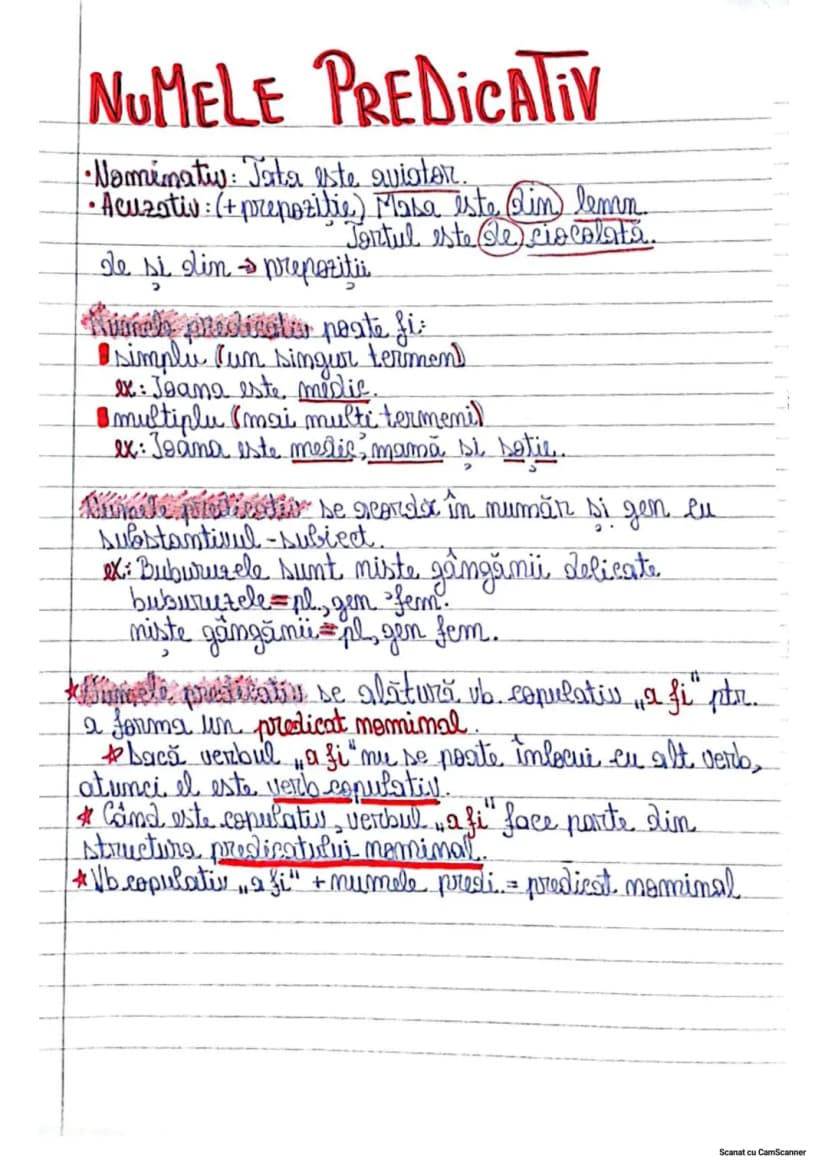 NUMELE PREDICATIV
•Nominativ: Tata este aviator.
•Acuzativ: (+prepoziție) Masa este din lemn.
Tortul este de ciocolată.
de și din → prepoziții
Numele predicativ poate fi:
simplu (un singur termen)
ex: Ioana este medic.
multiplu (mai multi termeni)
ex: Ioana este medic, mamă și soție.
Numele predicativ se acordă în număr și gen cu
substantivul-subiect.
ex: Buburuzele sunt niște gângănii delicate
buburuzele=pl., gen fem.
niște gângănii=pl, gen fem.
*Numele predicativ se alătură vb. copulativ „a fi" ptr.
a forma un predicat nominal.
*Dacă verbul „a fi" nu se poate înlocui cu alt verb,
atunci el este verb copulativ.
* Când este copulativ, verbul „a fi" face parte din
structura predicatului nominal.
*Vb copulativ „a fi" + numele predi. = predicat nominal
Scanat cu CamScanner